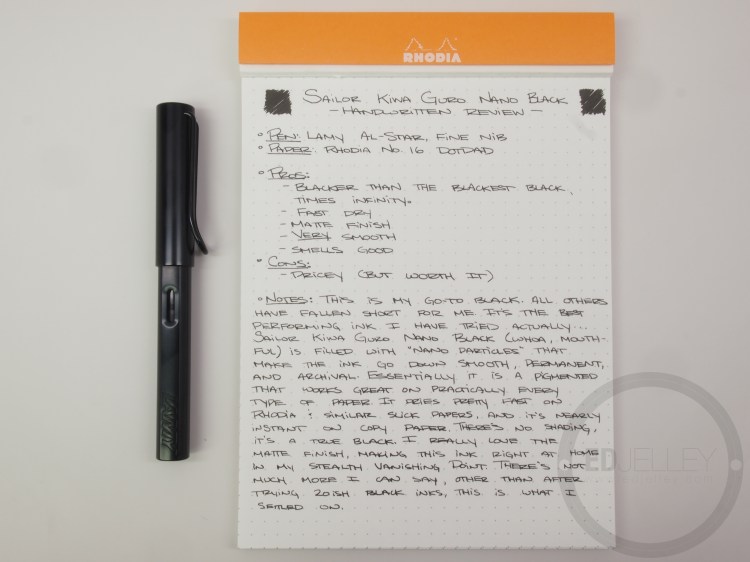 RHODIA
SAILOR KIWA GURO NANO BLACK
- HANDWRITTEN REVIEW -
• PEN: LAMY AL-STAR, FINE NIB
• PAPER: RHODIA NO. 16 DOTPAD
• PROS:
- BLACKER THAN THE BLACKEST BLACK,
TIMES INFINITY.
- FAST DRY
- MATTE FINISH
- VERY SMOOTH
- SMELLS GOOD
• CONS:
- PRICEY (BUT WORTH IT)
• NOTES: THIS IS MY GO-TO BLACK. ALL OTHERS
HAVE FALLEN SHORT FOR ME. IT'S THE BEST
PERFORMING INK I HAVE TRIED ACTUALLY...
SAILOR KIWA GURO NANO BLACK (WHOA, MOUTH-
FUL) IS FILLED WITH "NANO PARTICLES" THAT
MAKE THE INK GO DOWN SMOOTH, PERMANENT,
AND ARCHIVAL. ESSENTIALLY IT IS A PIGMENTED
THAT WORKS GREAT ON PRACTICALLY EVERY
TYPE OF PAPER. IT DRIES PRETTY FAST ON
RHODIA & SIMILAR SLICK PAPERS, AND IT'S NEARLY
INSTANT ON COPY PAPER. THERE'S NO SHADING,
IT'S A TRUE BLACK. I REALLY LOVE THE
MATTE FINISH, MAKING THIS INK RIGHT AT HOME
IN MY STEALTH VANISHING POINT. THERE'S NOT
MUCH MORE I CAN SAY, OTHER THAN AFTER
TRYING 20ISH BLACK INKS, THIS IS WHAT I
SETTLED ON.
LAMY
EDJELLEY